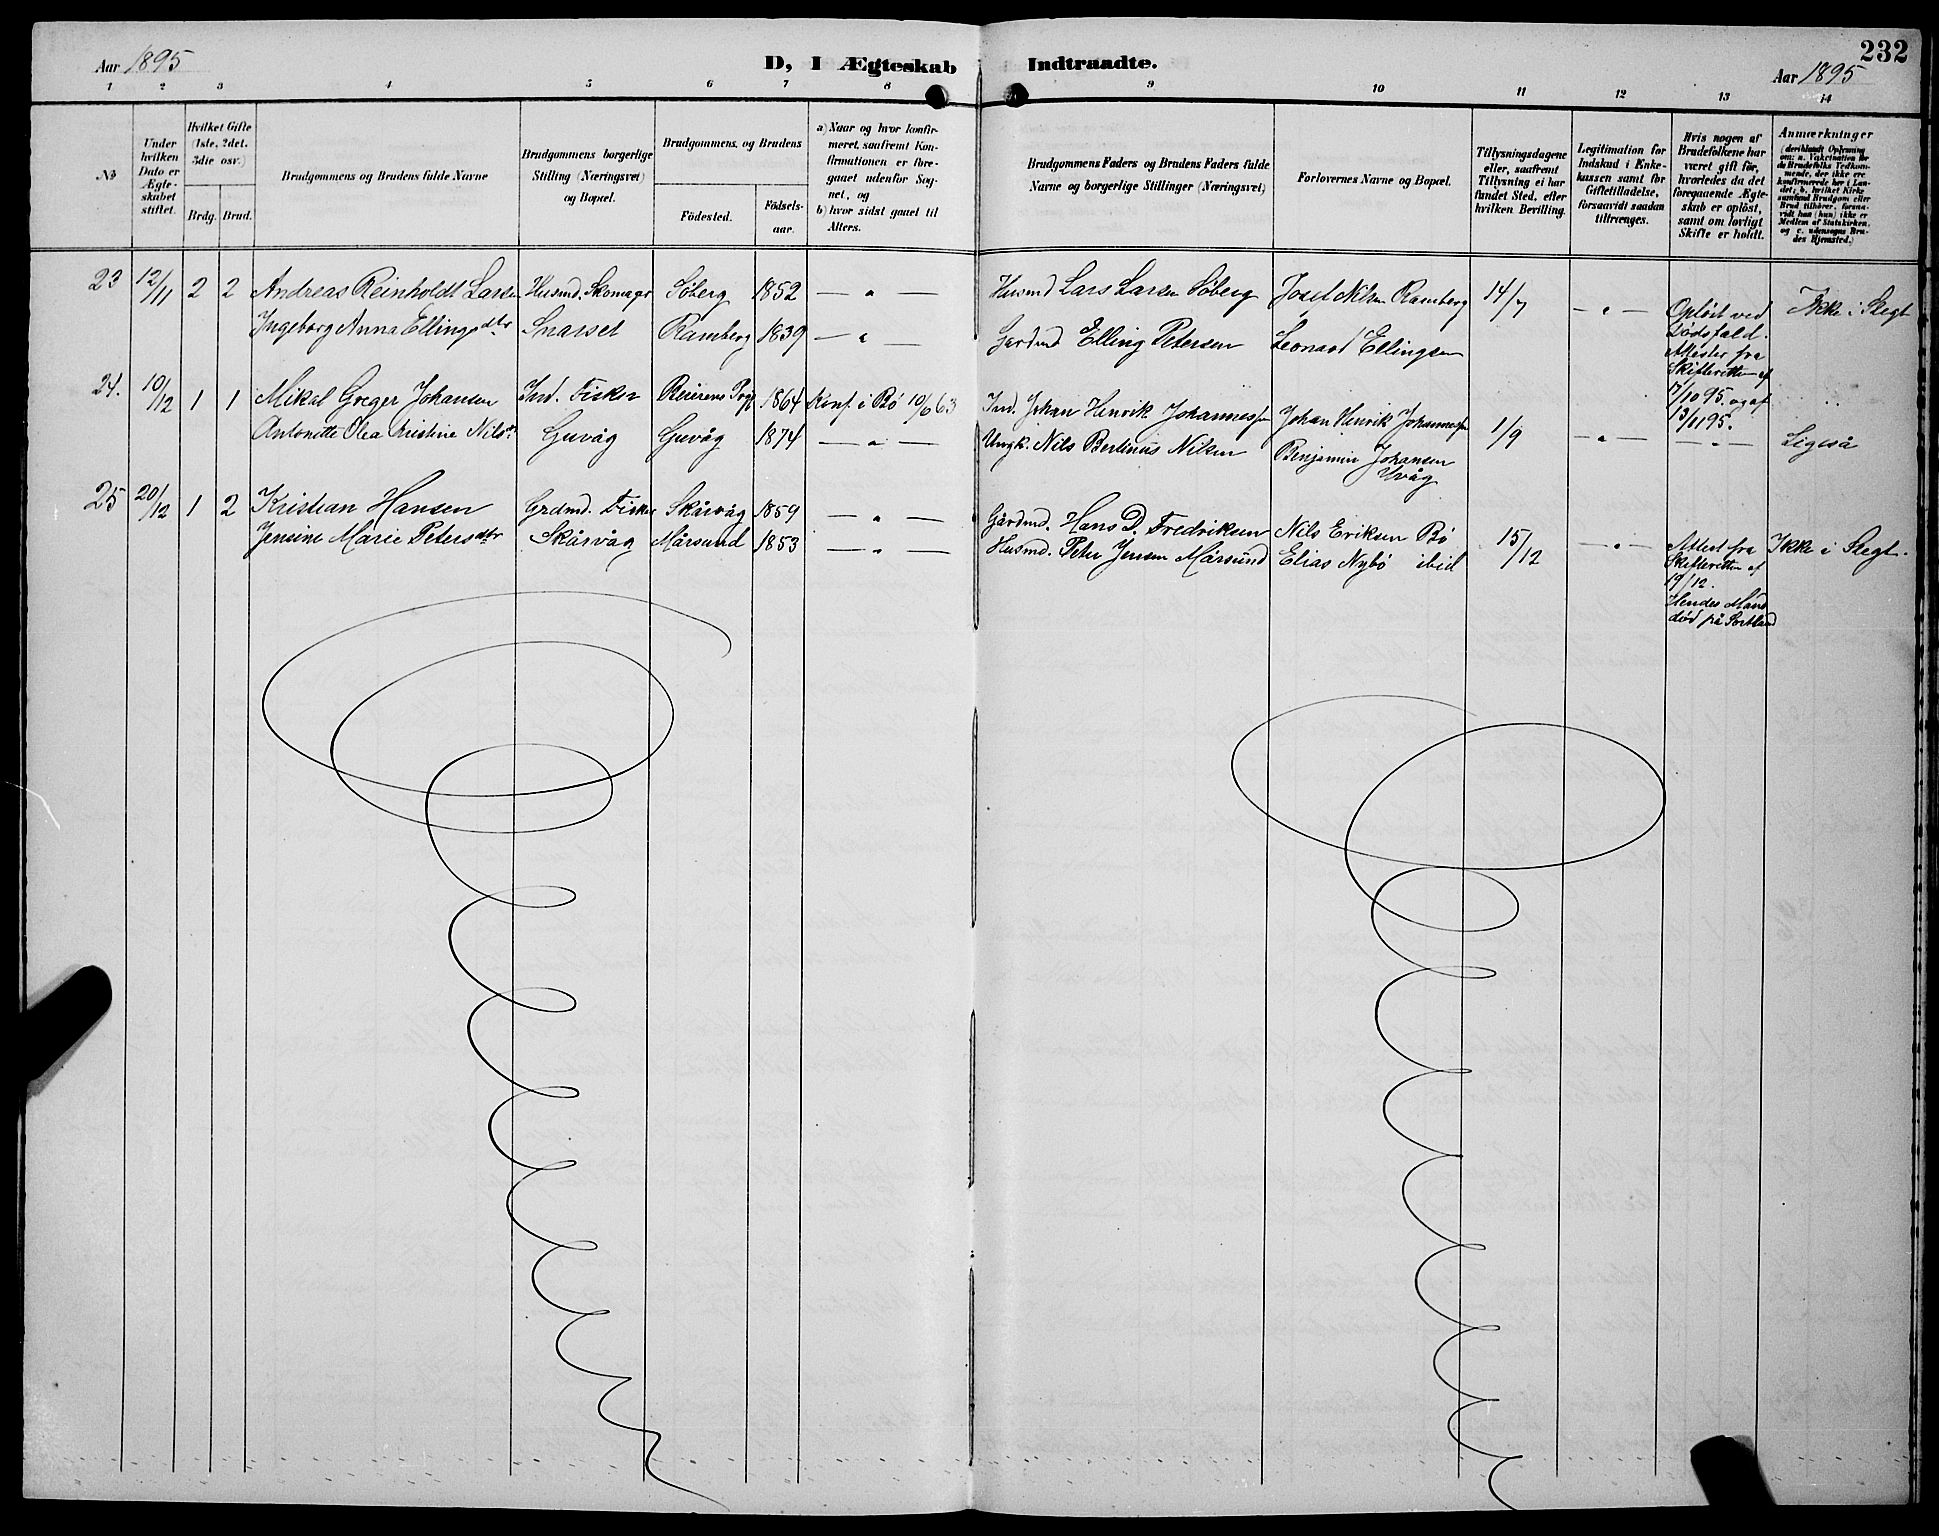 232
Aar 1895
D, I Ægteskab Indtraadte.
Aar 1895
1 2 3 4 5 6 7 8 9 10 11 12 13 14
No
Under
hvilken
Dato er
Ægte-
skabet
stiftet.
Hvilket Gifte
(1ste, 2det.
3die osv.)
Brdg. Brud.
Brudgommens og Brudens fulde Navne
Brudgommens borgerlige
Stilling (Næringsvei)
og Bopæl.
Brudgommens, og Brudens
Fødested.
Fødsels-
aar.
a) Naar og hvor konfir-
meret, saafremt Kon-
firmationen er fore-
gaaet udenfor Sog-
net, og
b) hvor sidst gaaet til
Alters.
Brudgommens Faders og Brudens Faders fulde
Navne og borgerlige Stillinger (Næringsvei)
Forlovernes Navne og Bopæl.
Tillysningsdagene
eller, saafremt
Tillysning ei har
fundet Sted, efter
hvilken Bevilling.
Legitimation for
Indskud i Enke-
kassen samt for
Giftetilladelse,
forsaavidt saadan
tiltrænges.
Hvis nogen af
Brudefolkene har
været gift før,
hvorledes da det
foregaaende Ægte-
skab er opløst,
samt om lovligt
Skifte er holdt.
Anmærkninger
(deriblandt Oplysning
om: a. Vakcination for
de Brudefolks Vedkom-
mende, der ikke ere
konfirmerede her i Lan-
det; b. hvilket Kirke
samfund Brudgom eller
Brud tilhører, forsaa-
vidt han (hun) ikke er
Medlem af Statskirken,
og c. udensogns Bru-
des Hjemsted.)
23 12/11 2 2 Andreas Reinholdt Larsen Husmd. Skomager Søberg 1852 — " — Husmd Lars Larsen Søberg Josef Nilsen Ramberg 14/7 — " — Opløst ved Ikke i Slegt
Ingeborg Anna Ellingsdtr Snarset Ramberg 1839 — " — Gårdmd Elling Petersen Leonard Ellingsen Dødsfald.
Attester fra
Skifteretten af
17/10 95. og af
13/11 95.
24. 10/12 1 1 Mikal Greger Johansen Ind. Fisker 1864 Konf. i Bø Ind. Johan Henrik Johannessen Johan Henrik Johannessen 1/9 — " — — " — Ligeså
Antonette Olea Kristine Nilsdr. Guvåg Guvåg 1874 — " — Ungk. Nils Bertinus Nilsen Benjamin Johansen
25 20/12 1 2 Kristian Hansen Grdmd. Fisker Skårvåg 1859 — " — Gårdmd. Hans D. Fredriksen Nils Eriksen Bø 15/12 — " — Attest fra Ikke i Slegt.
Jensine Marie Petersdtr Skårvåg Mårsund 1853 — " — Husmd. Peter Jensen Mårsund Elias Nybø ibid Skifteretten af
19/12.
Hendes Mand
død på Sortland